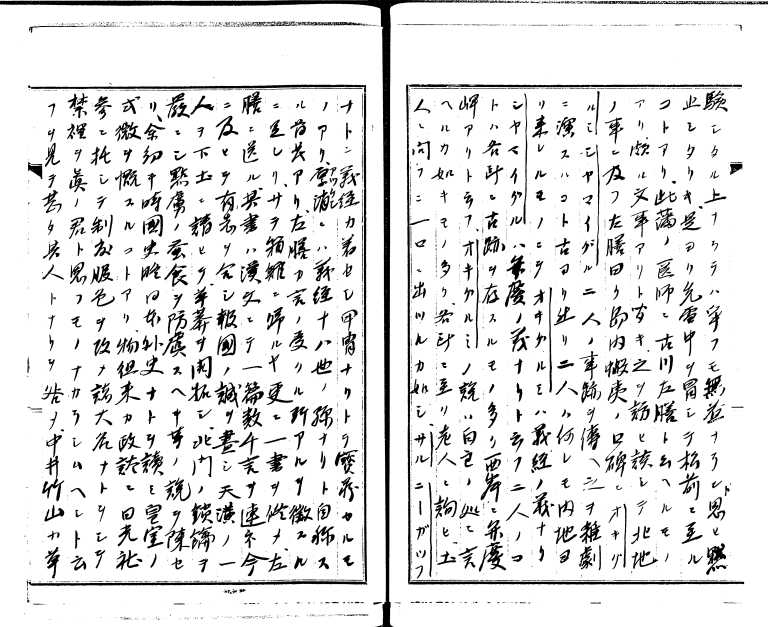 験シタル上ナラテハ寧フモ無益ナラント思ヒ黙
止シタリキ是ヨリ先雪中ヲ冒シテ松前ニ至ル
コトアリ此藩ノ医師ニ古川左膳ト云ヘルモノ
アリ頗ル文事アリト聞キ之ヲ訪ヒ談シテ北地
ノ事ニ及フ左膳曰ク島内蝦夷ノ口碑ニオキグ
ルミシヤマイグル二人ノ事跡ヲ傳ヘ之ヲ雜劇
ニ演スルコト古ヨリ然リ二人ハ何レモ内地ヨ
リ来レルモノニテオキグルミハ義経ノ義ナリ
シヤマイグルハ弁慶ノ義ナリト云フ二人ノコ
トハ各所ニ古跡ヲ存スルモノ多ク西岸ニ弁慶
岬アリト云フオキクルミノ説ハ白老ノ人ニ言
ヘルカ如キモノ多ク各所ニ至リ老人ニ詢ヒ土
人ニ問フニ一口ニ出ツルカ如シサルニーガツフ
ナトニ義経カ著セシ甲冑ナリトテ寶蔵セルモ
ノアリ ハ義経十八世ノ孫ナリト自称ス
ル者共アリ左膳カ言ノ更ラニ所アルヲ徴スル
ニ足レリサテ箱館ニ帰ルヤ更ニ一書ヲ修メ左
膳ニ送ル其書ハ漢文ニテ一篇数千言ヲ連ネ今
ニ及ヒテ有志ヲ会シ報國ノ誠ヲ盡シ天潢ノ一
人ヲ下土ニ請ヒテ羊蹄ヲ開拓シ北門ノ鎖鑰ヲ
嚴ニシ黠虜ノ蚕食ヲ防虞スヘキ等ノ説ヲ陳セ
リ余幼キ時國史略日本外史ナトヲ讀ミ皇室ノ
式微ヲ慨スルコトアリ物徂来カ政談ニ日光社
参ニ托シテ制度服色ヲ改メ諸大名ナトヲシテ
禁裡ヲ眞ノ君ト思フモノナカラシムヘシト云
フヲ見テ甚タ其人トナリヲ咎メ中井竹山カ草